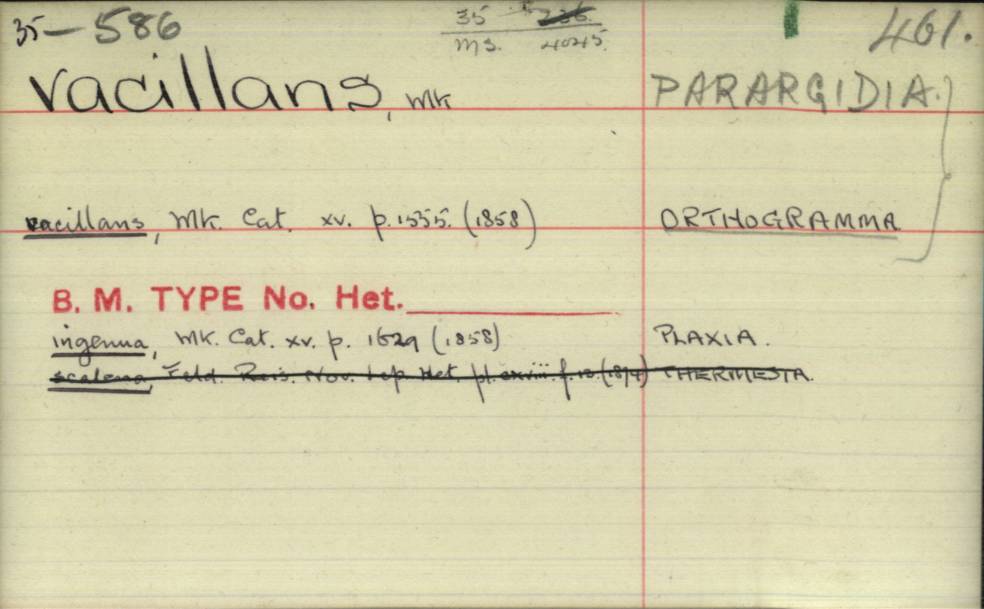 35—586 35 236. 461.
ms. 4045.
vacillans, Wlk PARARGIDIA.
vacillans, Wlk. Cat. xv. p. 1555. (1858) ORTHOGRAMMA
B. M. TYPE No. Het.
ingenua, Wlk. Cat. xv. p. 1629 (1858) PLAXIA.
scalena, Feld. Reis. Nov. Lep. Het. pl. cxviii. f. 12. (1874) THERMESIA.